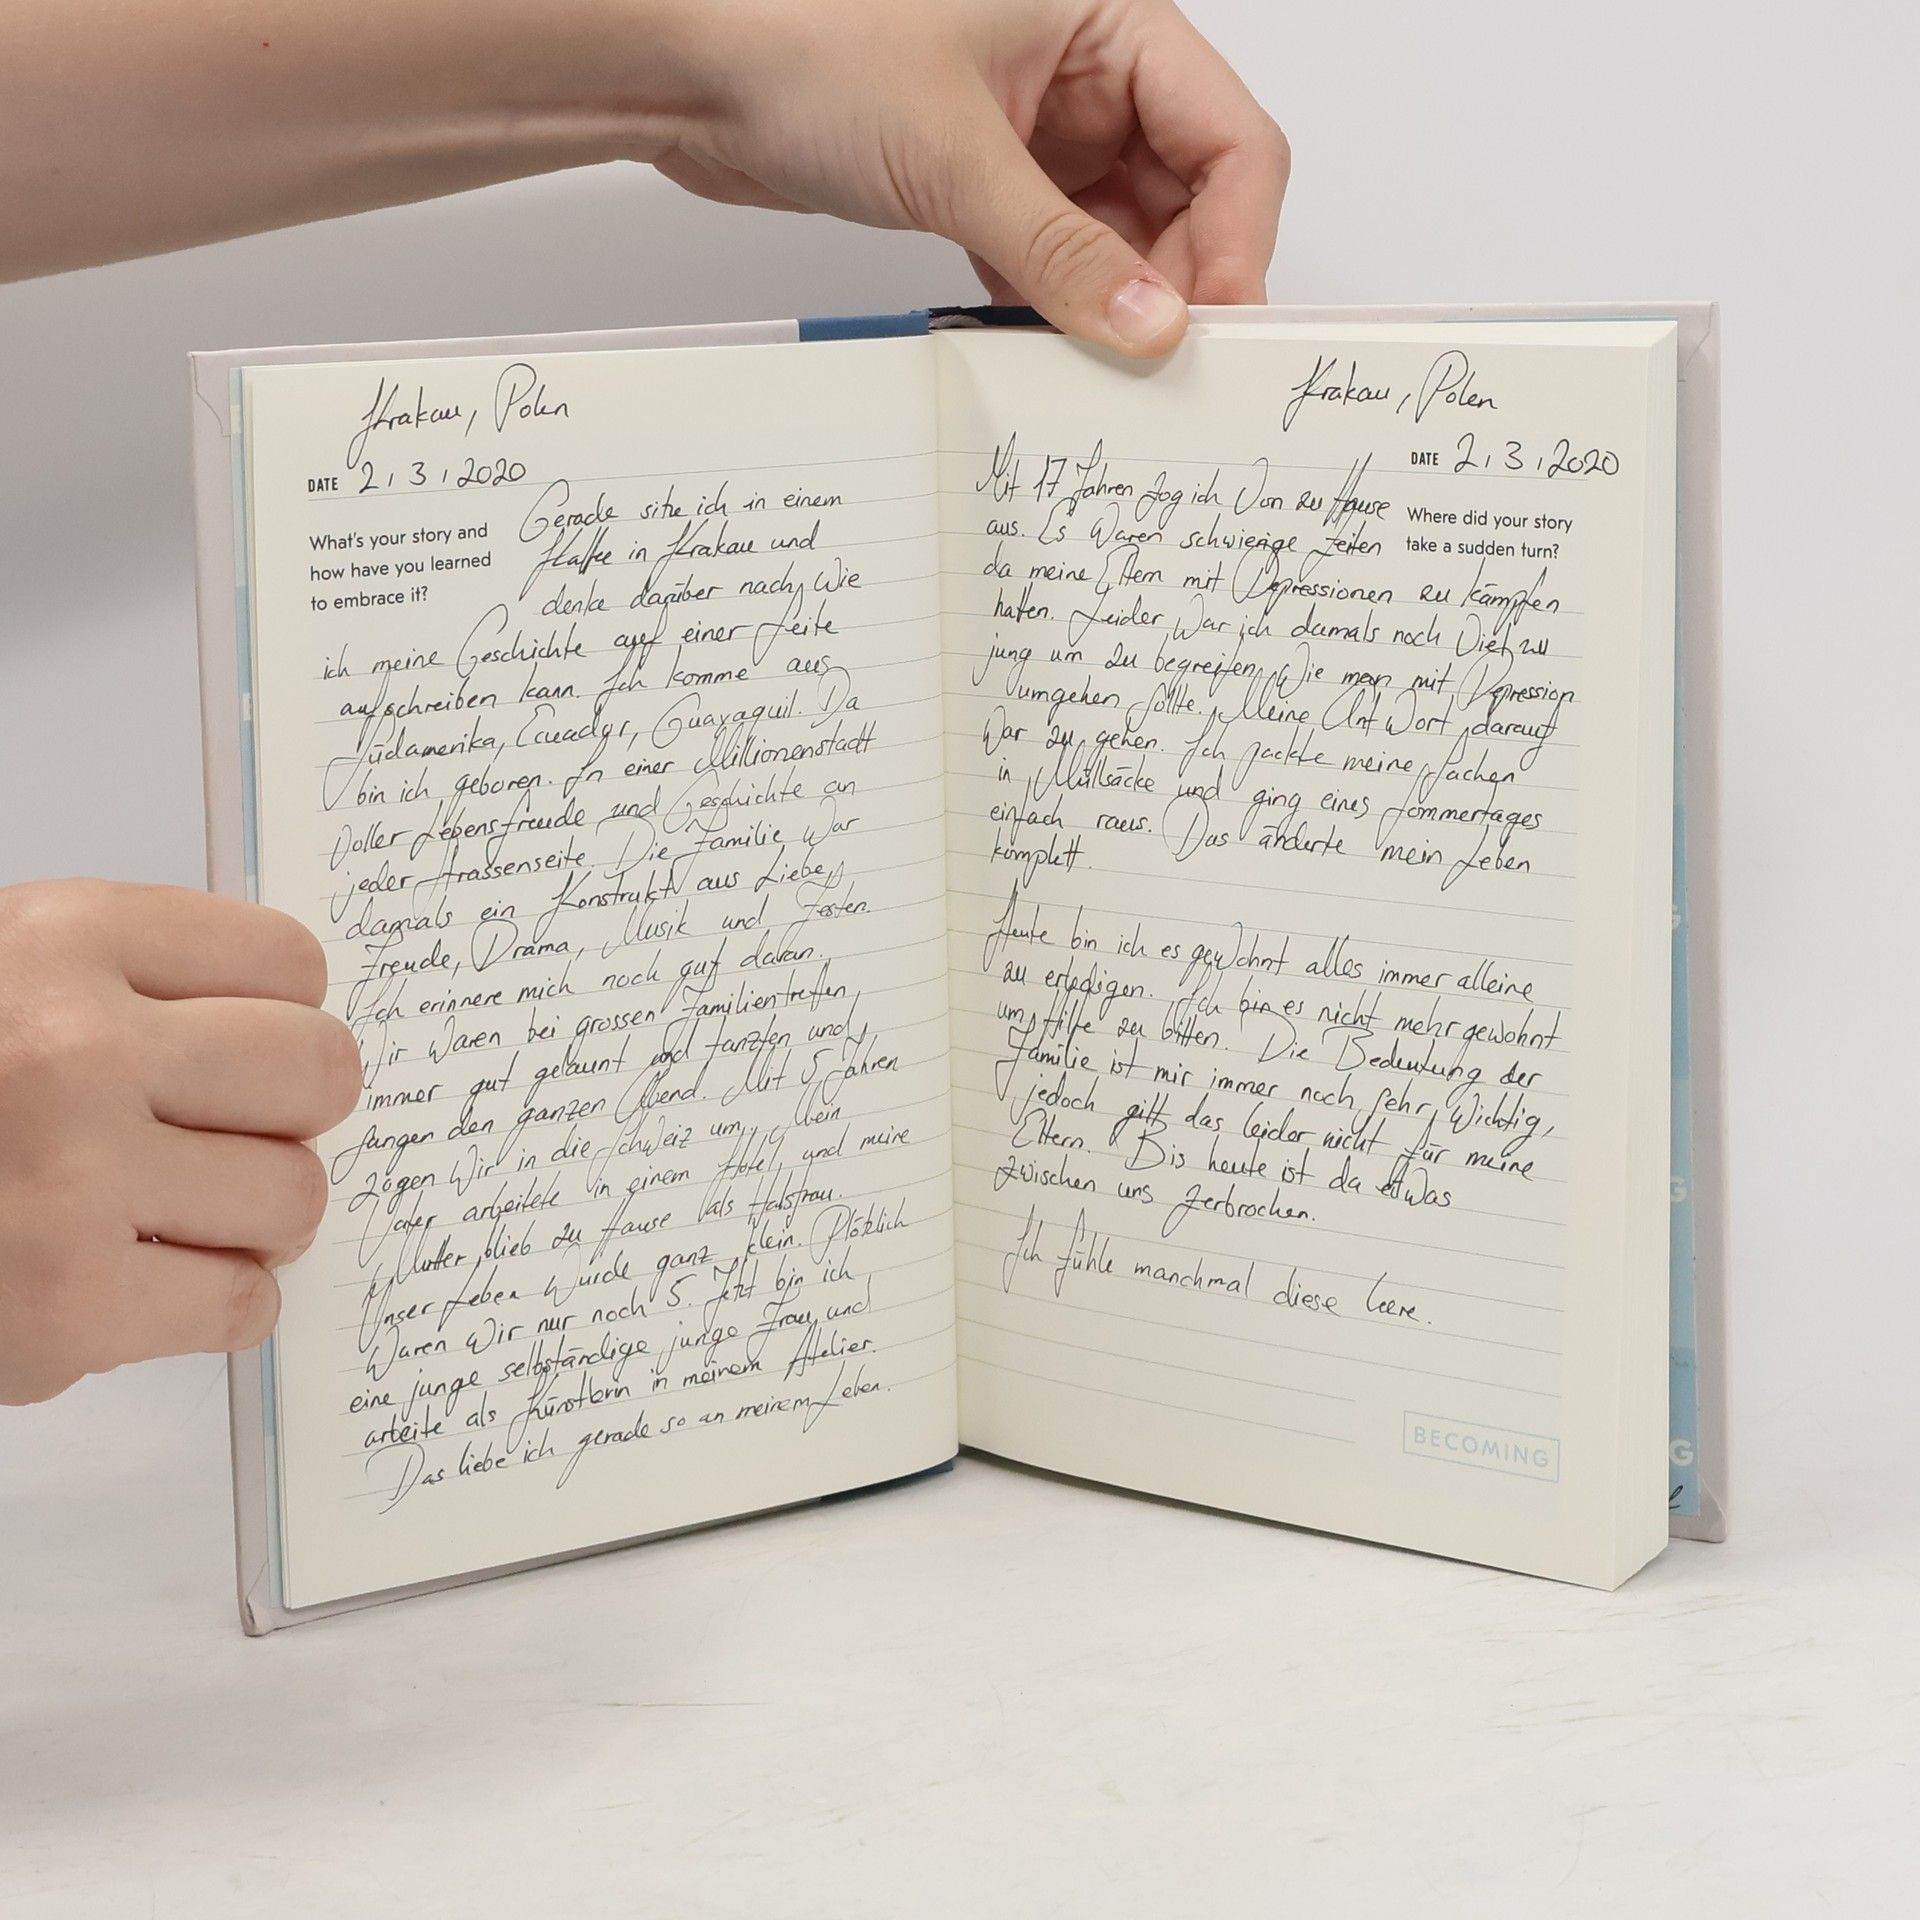 Krakau, Polen
DATE 2 / 3 / 2020
What's your story and
how have you learned
to embrace it?
Gerade sitze ich in einem
Kaffee in Krakau und
denke darüber nach, wie
ich meine Geschichte auf einer Seite
aufschreiben kann. Ich komme aus
Südamerika, Ecuador, Guayaquil. Da
bin ich geboren. In einer Millionenstadt
voller Lebensfreude und Geschichte an
jeder Strassenseite. Die Familie war
damals ein Konstrukt aus Liebe,
Freude, Drama, Musik und Festen.
Ich erinnere mich noch gut daran.
Wir waren bei grossen Familientreffen,
immer gut gelaunt und tanzten und
sangen den ganzen Abend. Mit 5 Jahren
zogen wir in die Schweiz um, Mein
Vater arbeitete in einem Hotel, und meine
Mutter blieb zu Hause als Hausfrau.
Unser Leben wurde ganz klein. Plötzlich
waren wir nur noch 5. Jetzt bin ich
eine junge selbständige junge Frau und
arbeite als Künstlerin in meinem Atelier.
Das liebe ich gerade so an meinem Leben.
Krakau, Polen
DATE 2 / 3 / 2020
Where did your story
take a sudden turn?
Mit 17 Jahren zog ich von zu Hause
aus. Es waren schwierige Zeiten
da meine Eltern mit Depressionen zu kämpfen
hatten. Leider war ich damals noch viel zu
jung um zu begreifen, wie man mit Depression
umgehen sollte. Meine Antwort darauf
war zu gehen. Ich packte meine Sachen
in Müllsäcke und ging eines Sommertages
einfach raus. Das änderte mein Leben
komplett.
Heute bin ich es gewohnt alles immer alleine
zu erledigen. Ich bin es nicht mehr gewohnt
um Hilfe zu bitten. Die Bedeutung der
Familie ist mir immer noch sehr wichtig,
jedoch gilt das leider nicht für meine
Eltern. Bis heute ist da etwas
zwischen uns zerbrochen.
Ich fühle manchmal diese Leere.
BECOMING